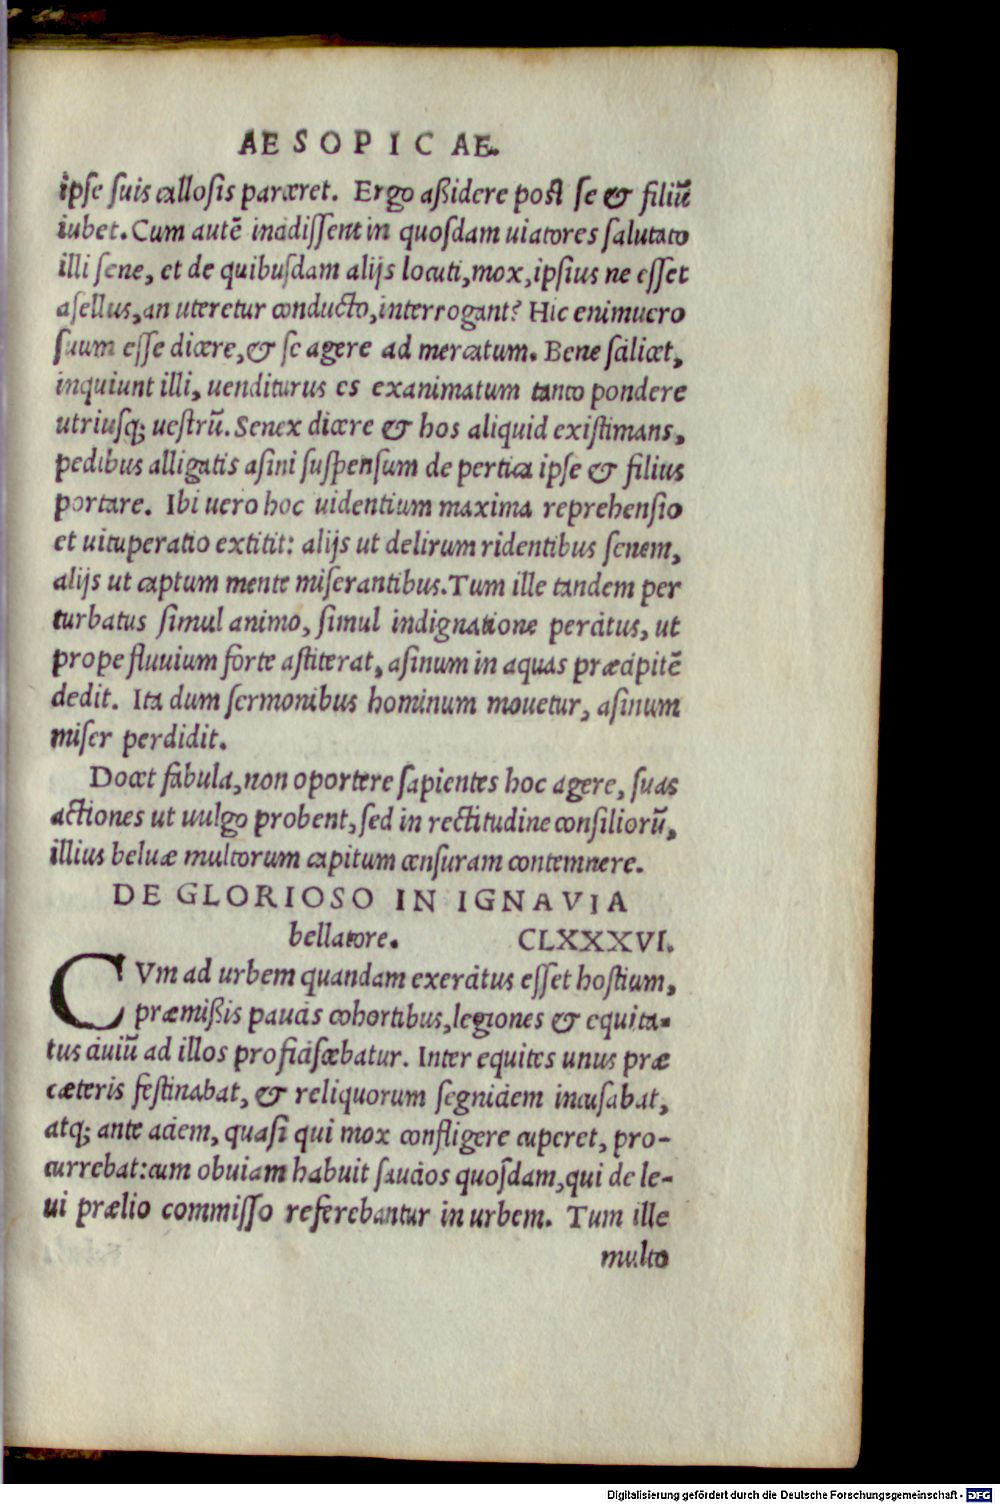 AESOPICAE.
ipse suis callosis parceret. Ergo aßidere post se & filiũ
iubet. Cum autẽ incidissent in quosdam uiatores salutato
illi sene, et de quibusdam alijs locuti, mox, ipsius ne esset
asellus, an uteretur conducto, interrogant? Hic enimuero
suum esse dicere, & se agere ad mercatum. Bene scilicet,
inquiunt illi, uenditurus es exanimatum tanto pondere
utriusq; uestrũ. Senex dicere & hos aliquid existimans,
pedibus alligatis asini suspensum de pertica ipse & filius
portare. Ibi uero hoc uidentium maxima reprehensio
et uituperatio extitit: alijs ut delirum ridentibus senem,
alijs ut captum mente miserantibus. Tum ille tandem per
turbatus simul animo, simul indignatione percitus, ut
prope fluuium forte astiterat, asinum in aquas præcipitẽ
dedit. Ita dum sermonibus hominum mouetur, asinum
miser perdidit.
Docet fabula, non oportere sapientes hoc agere, suas
actiones ut uulgo probent, sed in rectitudine consiliorũ,
illius beluæ multorum capitum censuram contemnere.
DE GLORIOSO IN IGNAVIA
bellatore. CLXXXVI.
CVm ad urbem quandam exercitus esset hostium,
præmißis paucis cohortibus, legiones & equita-
tus ciuiũ ad illos proficiscebatur. Inter equites unus præ
cæteris festinabat, & reliquorum segniciem incusabat,
atq; ante aciem, quasi qui mox confligere cuperet, pro-
currebat: cum obuiam habuit saucios quosdam, qui de le-
ui prælio commisso referebantur in urbem. Tum ille
multo
Digitalisierung gefördert durch die Deutsche Forschungsgemeinschaft - DFG